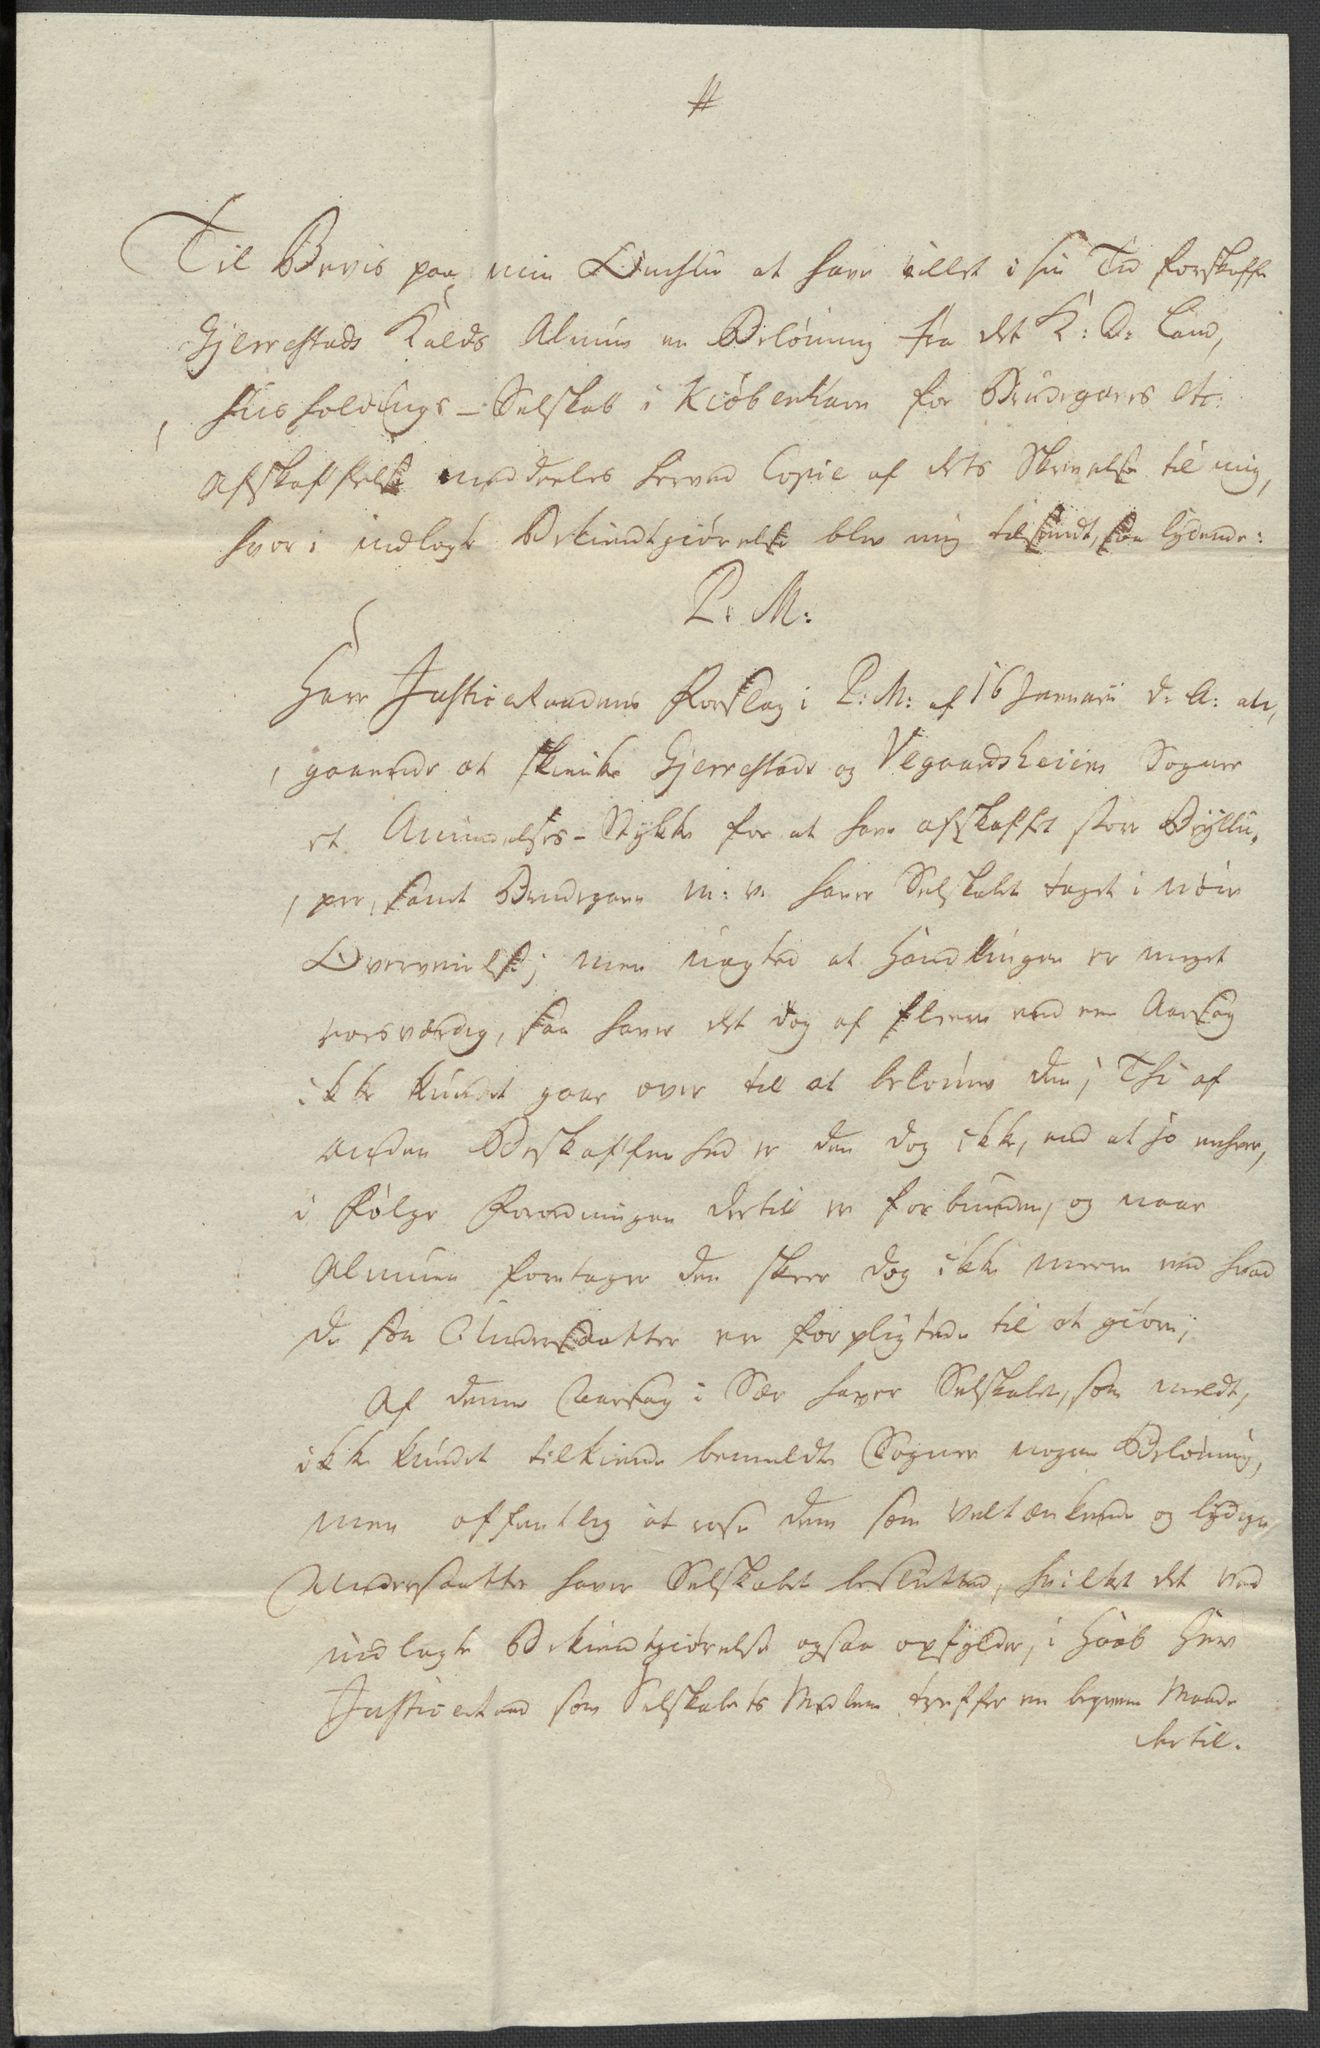 #
Til Beviis paa min Ønskse at have villet i sin Tid forskaffe
Gjerrestads Kalds Almue en Belønning fra det K: D: Land,
huusholdnings-Selskab i Kiøbenhavn for Brudegaves etc:
Afskaffelse meddeeles herved Copie af dets Skrivelse til mig,
hvori indlagte Bekiendtgiørelse blev mig tilsendt, saa lydende:
P: M:
Herr Justiceraadens Forslag i P: M: af 16 Januarii d: A: an,
gaaende at skienke Gjerrestads og Vegaardsheiens Sogner
et Amindelses-Stykke for at have afskaffet store Bryllu,
per, samt Brudegave m: v. haver Selskabet taget i nøie
Overveielse; men uagted at Handlingen er meget
roesværdig, saa haver det dog af fleere end een Aarsag
ikke kundet gaae over til at belønne den; Thi af
anden Beskaffenhed er den dog ikke, end at jo enhver,
i Følge Forordningen dertil er forbunden, og naar
Almuen foretager den skeer dog ikke meere end hvad
de som Undersaatter ere forpligtede til at giøre;
Af denne Aarsag i Sær haver Selskabet, som meldt,
ikke kundet tilkiende bemeldte Sogner nogen Belønning,
men offentlig at rose dem som veltænkende og lydige
Undersaatter haver Selskabet beslutted, hvilket det ved
indlagte Bekiendtgiørelse ogsaa opfylder, i Haab Herr
Justiceraad som Selskabets Medlem treffer en beqvem Maade
dertil.